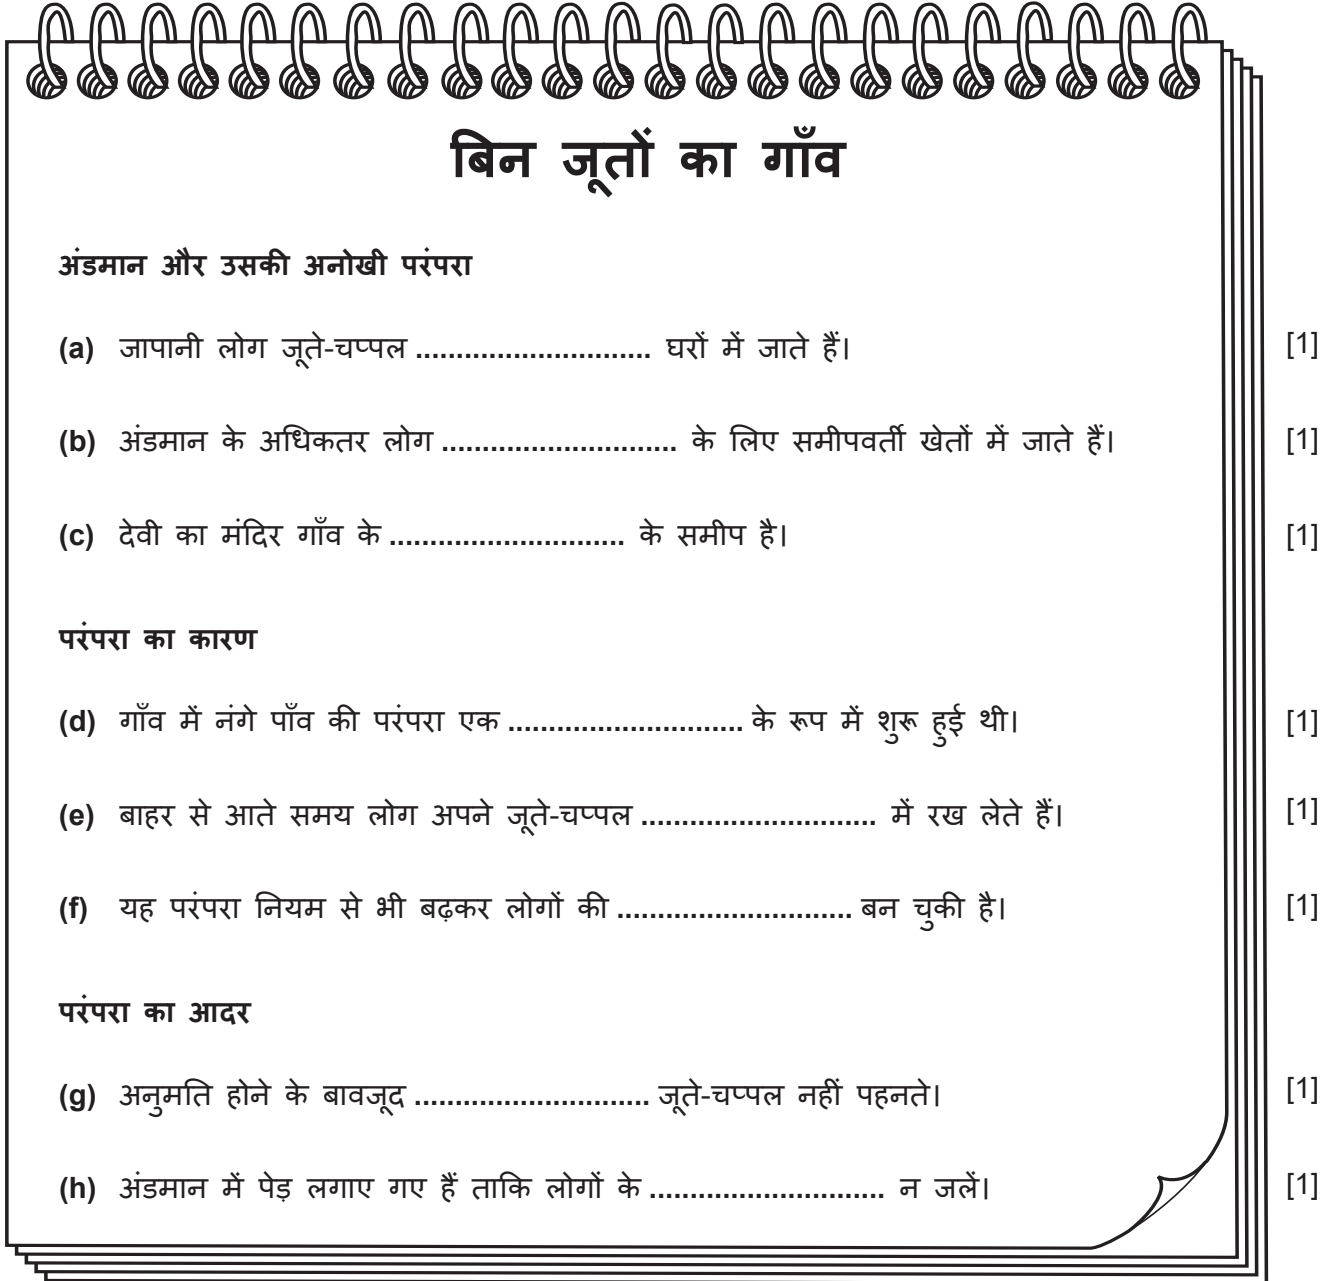 बिन जूतों का गाँव
अंडमान और उसकी अनोखी परंपरा
(a) जापानी लोग जूते-चप्पल ............................. घरों में जाते हैं। [1]
(b) अंडमान के अधिकतर लोग ............................. के लिए समीपवर्ती खेतों में जाते हैं। [1]
(c) देवी का मंदिर गाँव के ............................. के समीप है। [1]
परंपरा का कारण
(d) गाँव में नंगे पाँव की परंपरा एक ............................. के रूप में शुरू हुई थी। [1]
(e) बाहर से आते समय लोग अपने जूते-चप्पल ............................. में रख लेते हैं। [1]
(f) यह परंपरा नियम से भी बढ़कर लोगों की ............................. बन चुकी है। [1]
परंपरा का आदर
(g) अनुमति होने के बावजूद ............................. जूते-चप्पल नहीं पहनते। [1]
(h) अंडमान में पेड़ लगाए गए हैं ताकि लोगों के ............................. न जलें। [1]